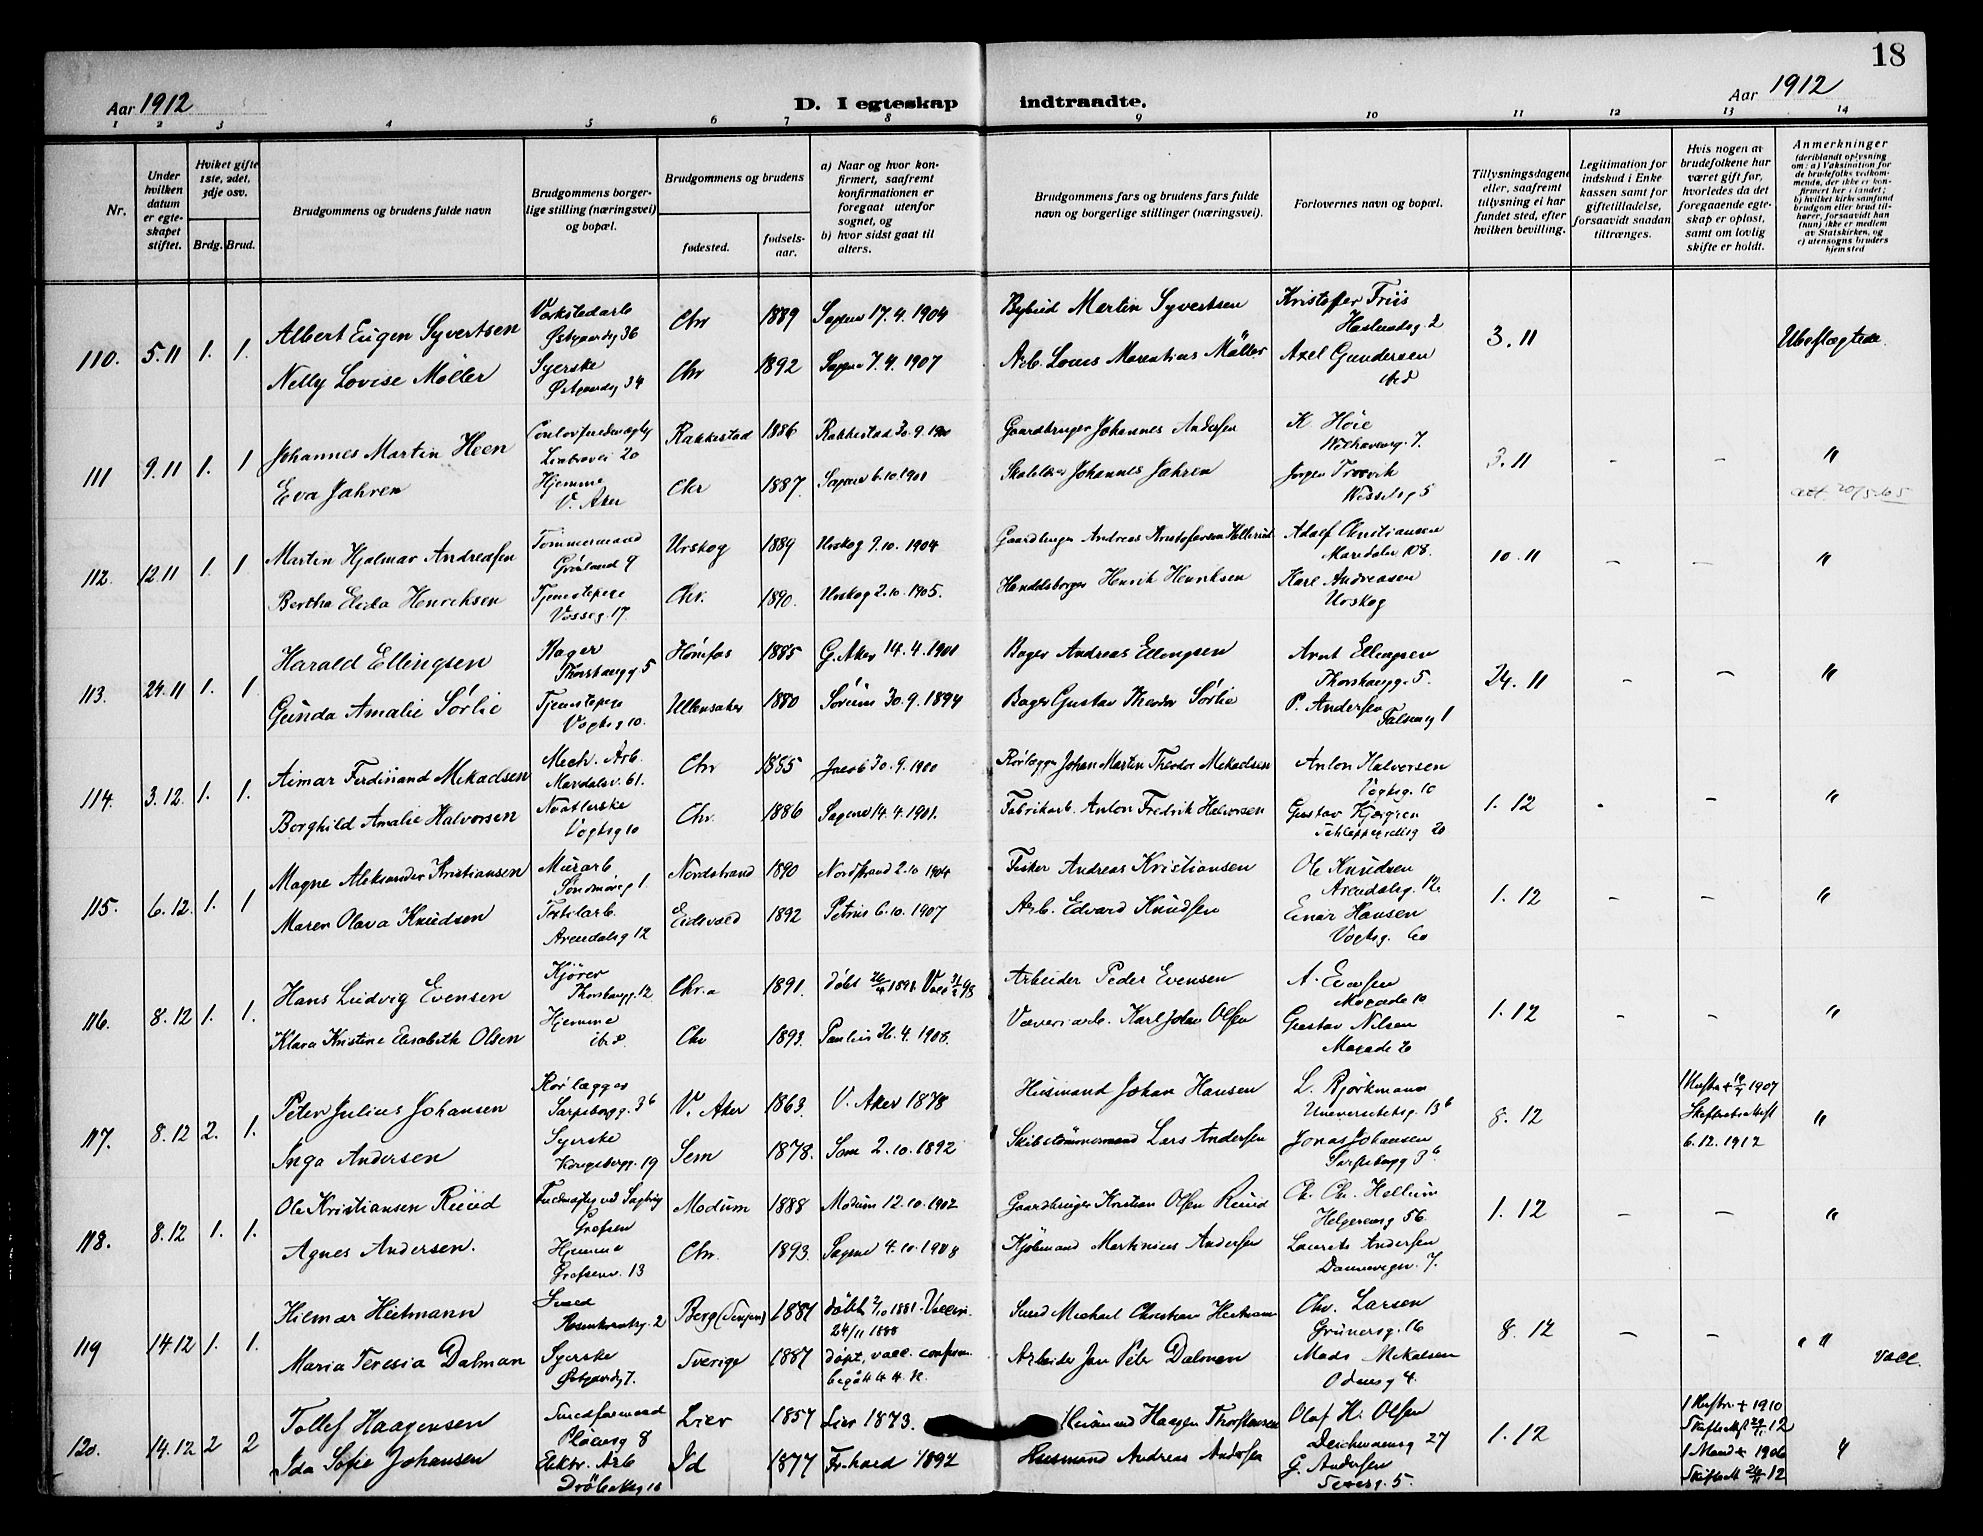 18
Aar 1912
D. I egteskap indtraadte.
Aar 1912
1 2 3 4 5 6 7 8 9 10 11 12 13 14
Nr.
Under hvilken datum er egteskapet stiftet.
Hvilket gifte 1ste, 2det, 3dje osv.
Brdg. Brud.
Brudgommens og brudens fulde navn
Brudgommens borgerlige stilling (næringsvei) og bopæl.
Brudgommens og brudens
fødested.
fødselsaar.
a) Naar og hvor konfirmert, saafremt konfirmationen er foregaat utenfor sognet, og
b) hvor sidst gaat til alters.
Brudgommens fars og brudens fars fulde navn og borgerlige stillinger (næringsvei).
Forlovernes navn og bopæl.
Tillysningsdagene eller, saafremt tillysning ei har fundet sted, efter hvilken bevilling.
Legitimation for indskud i Enkekassen samt for giftetilladelse, forsaavidt saadan tiltrænges.
Hvis nogen av brudefolkene har været gift før, hvorledes da det foregaaende egteskap er opløst, samt om lovlig skifte er holdt.
Anmerkninger
(deriblandt oplysning om: a) Vaksination for de brudefolks vedkommende, der ikke er konfirmert her i landet; b) hvilket kirkesamfund brudgom eller brud tilhører, forsaavidt han (hun) ikke er medlem av Statskirken, og c) utensogns bruders hjemsted
110. 5.11 1. 1. Albert Eugen Syvertsen Chr 1889 Sagene 17.4.1904 Martin Syvertsen Kristoffer Friis 3.11 Ubeslegtede
Østgaardsg 36
Nelly Lovise Møller Syerske Chr 1892 Sagene 7.4.1907 Arb. Louis Marentius Møller Axel Gundersen
Østgaardsg 34 ibid
111 9.11 1. 1 Johannes Martin Heen Rakkestad 1886 Rakkestad 30.9.1900 Gaardbruger Johannes Andersen K Høie 3.11 - - "
Eva Jahren Hjemme Chr 1887. Sagene 6.10.1901 Johannes Jahren Jørgen
V. Aker Wesselsg 5
112. 12.11 1. 1 Martin Hjalmar Andreassen Tømmermand Urskog 1889 Urskog 9.10.1904 Gaardbruger Andreas Adolf Christiansen 10.11 - - "
Grønland 9 Maridalsv 108.
Bertha Elida Henriksen Tjenestepige Chr. 1890. Urskog 2.10.1905. Handelsborger Henrik Henriksen Karl Andreasen
Vosseg. 17. Urskog
113. 24.11 1. 1 Harald Ellingsen Bager Hønefos 1885 G. Aker 14.4.1901 Bager Andreas Ellingsen Arnt Ellingsen 24.11 - - "
Thorshaugg 5 Thorshaugg. 5.
Gunda Amalie Sørlie Tjenestepige Ullensaker 1880 Sørum 30.9.1894 Bager Gustav Theodor Sørlie P. Andersen
Vogtsg 10. Falseng 1
114. 3.12. 1. 1. Aimar Ferdinand Mikaelsen Mech. Arb. Chr 1885 Jacob 30.9.1900 Rørlægger Johan Martin Theodor Mikaelsen Anton Halvorsen 1.12 - - "
Maridalsv. 61. Vogtsg. 10
Borghild Amalie Halvorsen Chr. 1886 Sagene 14.4.1901. Fabrikarb. Anton Fredrik Halvorsen Gustav Kjærgren
Vogtsg 10 20
115. 6.12. 1. 1 Magne Aleksander Kristiansen Murarb Nordstrand 1890 Nordstrand 2.10 1904 Fisker Andreas Kristiansen Ole Knudsen 1.12 - - "
Søndmørsg 1. Arendalsg. 12.
Maren Olava Knudsen Textilarb. Eidsvold 1892 Petrus 6.10.1907 Arb. Edvard Knudsen Einar Hansen
Arendalsg 12 Vogtsg. 60
116. 8.12 1. 1. Hans Ludvig Evensen Kjører Chr.a 1891. døbt 26/4 1891. Arbeider Peder Evensen A. Evensen 1.12 - - "
Thorshaugg. 12
Klara Kristine Elisabeth Olsen Hjemme Chr 1893. Paulus 26.4.1908. Karl Johan Olsen Gustav Nilsen
ibid.
117. 8.12 2. 1. Peter Julius Johansen Rørlægger V. Aker 1863. V. Aker 1878 Husmand Johan Hansen L. Bjørkmann 8.12 1907 "
Sarpsborgg. 3b Universitetsg. 13b
Inga Andersen Syerske Sem 1878. Sem 2.10.1892 Skibstømmermand Lars Andersen Jonas Johansen 6.12.1912
Kongsbergg. 19 Sarpsborgg 3b
118. 8.12 1. 1. Ole Kristiansen Ruud Modum 1888 Modum 12.10.1902 Gaardbruger Kristian Olsen Ruud Ch. Chr. Hellum 1.12 - - "
Grefsen Helgesensg 56.
Agnes Andersen. Hjemme Chr. 1893. Sagene 4.10.1908 Kjøbmand Martinius Andersen Laurits Andersen
Grefsenv. 13 Dannevigsv. 7.
119 14.12 1. 1. Hilmar Heitmann Smed Berg (Senjen) 1881 døbt 2/10 1881. Smed Michael Christian Heitmann Chr. Larsen 8.12 - - " "
Rosenkrantzg. 2 24/11 1888 Grünersg. 16
Maria Teresia Dalman Syerske Sverige 1887 døpt, vacc. confirm. Arbeider Jan Peter Dalman Mads Mikalsen vacc.
Østgaardsg 7. Odensg 4.
120. 14.12 2 2 Tollef Haagensen Smedformand Lier 1857 Lier 1873. Husmand Haagen Thorstensen Olaf H. Olsen 1.12 1 Hustru + 1910 "
8 27
Ida Sofie Johansen Elektr. Arb Id 1877 Fr.hald 1892 Husmand Andreas Andersen G. Andersen 1 Mand + 1906